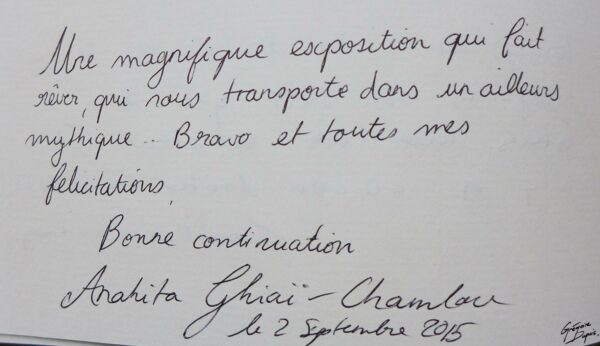 Une magnifique exposition qui fait
rêver, qui nous transporte dans un ailleurs
mythique.. Bravo et toutes mes
felicitations,
Bonne continuation
Anahita Ghiaï-Chamlou
le 2 Septembre 2015
Grégoire
Dupuis.